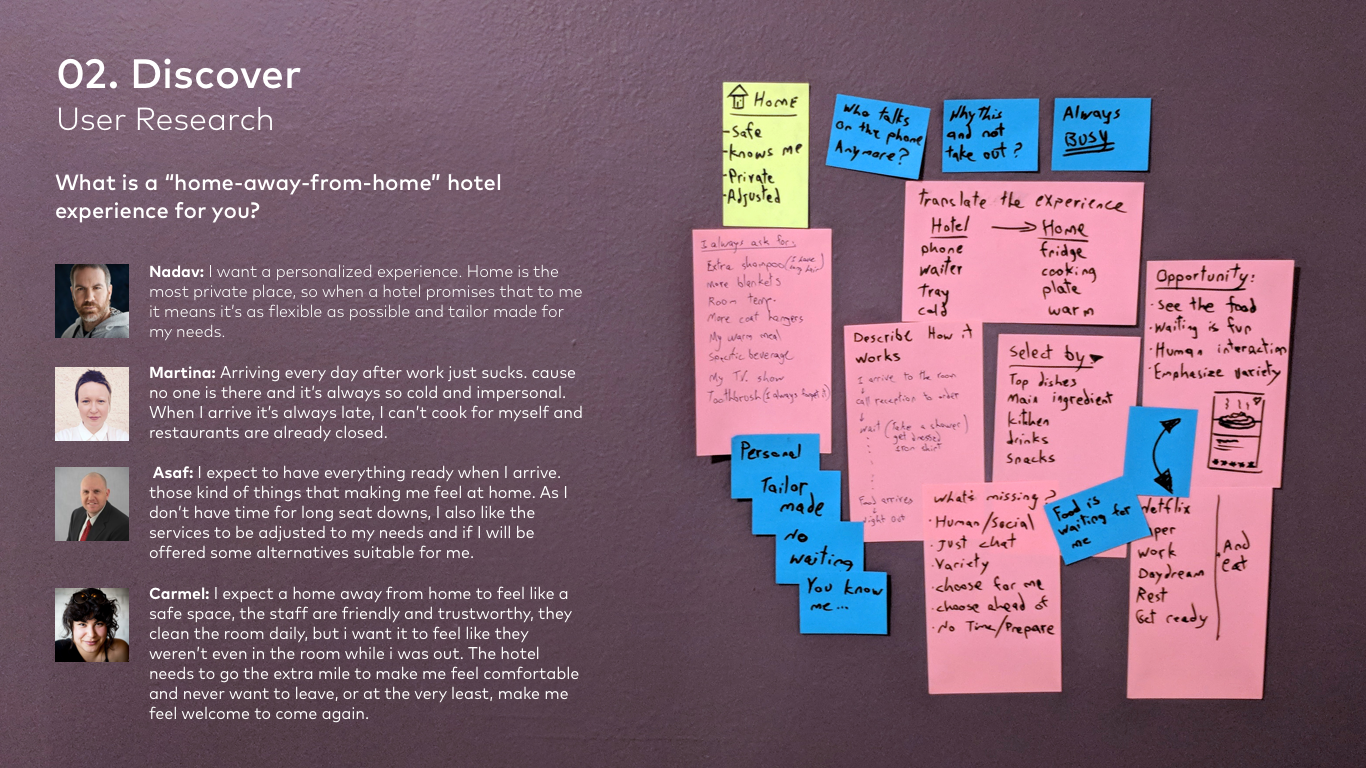 02. Discover
User Research
What is a “home-away-from-home” hotel
experience for you?
Nadav: I want a personalized experience. Home is the
most private place, so when a hotel promises that to me
it means it’s as flexible as possible and tailor made for
my needs.
Martina: Arriving every day after work just sucks. cause
no one is there and it’s always so cold and impersonal.
When I arrive it’s always late, I can’t cook for myself and
restaurants are already closed.
Asaf: I expect to have everything ready when I arrive.
those kind of things that making me feel at home. As I
don’t have time for long seat downs, I also like the
services to be adjusted to my needs and if I will be
offered some alternatives suitable for me.
Carmel: I expect a home away from home to feel like a
safe space, the staff are friendly and trustworthy, they
clean the room daily, but i want it to feel like they
weren’t even in the room while i was out. The hotel
needs to go the extra mile to make me feel comfortable
and never want to leave, or at the very least, make me
feel welcome to come again.
Home
-Safe
-knows me
-Private
-Adjusted
Who talks
on the phone
Anymore?
Why this
and not
take out?
Always
BUSY
translate the experience
Hotel → Home
phone fridge
waiter cooking
tray plate
cold warm
I always ask for:
Extra shampoo (I have
my hair)
More blankets
Room temp.
More coat hangers
My warm meal
Specific beverage
My T.V. show
Toothbrush (I always forget it)
Describe How it
works
I arrive to the room
call reception to order
wait (Take a shower)
get dressed
iron shirt
Food arrives
Night out
Select by
Top dishes
Main ingredient
kitchen
drinks
snacks
Opportunity:
·See the food
·Waiting is fun
·Human interaction
·Emphasize variety
Personal
Tailor
made
No
waiting
You know
me...
What's missing?
·Human/Social
·Just chat
·Variety
·choose for me
·choose ahead of
·No Time/Prepare
Food is
waiting for
me
Netflix
work
Daydream
Rest
Get ready
And
eat